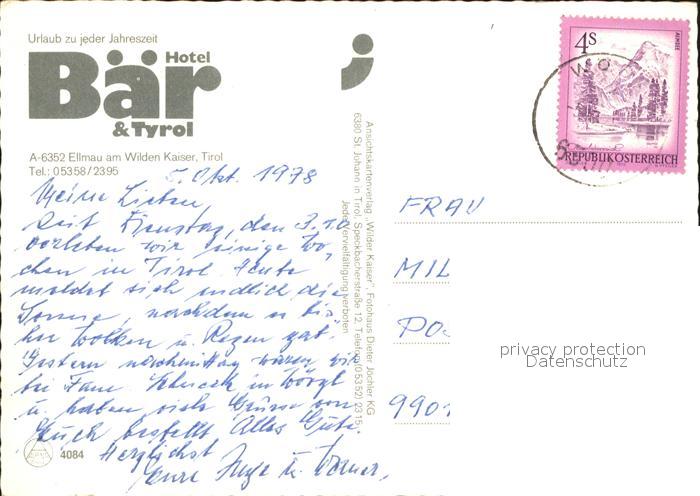 Urlaub zu jeder Jahreszeit
Hotel
Bär
& Tyrol
A-6352 Ellmau am Wilden Kaiser, Tirol
Tel.: 05358/2395
5. Okt. 1978
Meine Lieben,
seit Dienstag, den 3.10.
verleben wir einige Wo-
chen in Tirol. Heute
meldet sich endlich die
Sonne, nachdem es bis-
her Wolken u. Regen gab.
Gestern nachmittag waren wir
bei Fam. in Wörgl
u. haben viele Grüsse von
Euch bestellt. Alles Gute.
Herzlichst
Eure Inge u. Werner.
4084
Ansichtskartenverlag „Wilder Kaiser", Fotohaus Dieter Jöchler KG
6380 St. Johann in Tirol, Speckbacherstraße 12, Telefon (05352) 2315
Jede Vervielfältigung verboten
4S
ALMSEE
REPUBLIK ÖSTERREICH
WÖ
63
FRAU
MIL
PO
9901
privacy protection
Datenschutz